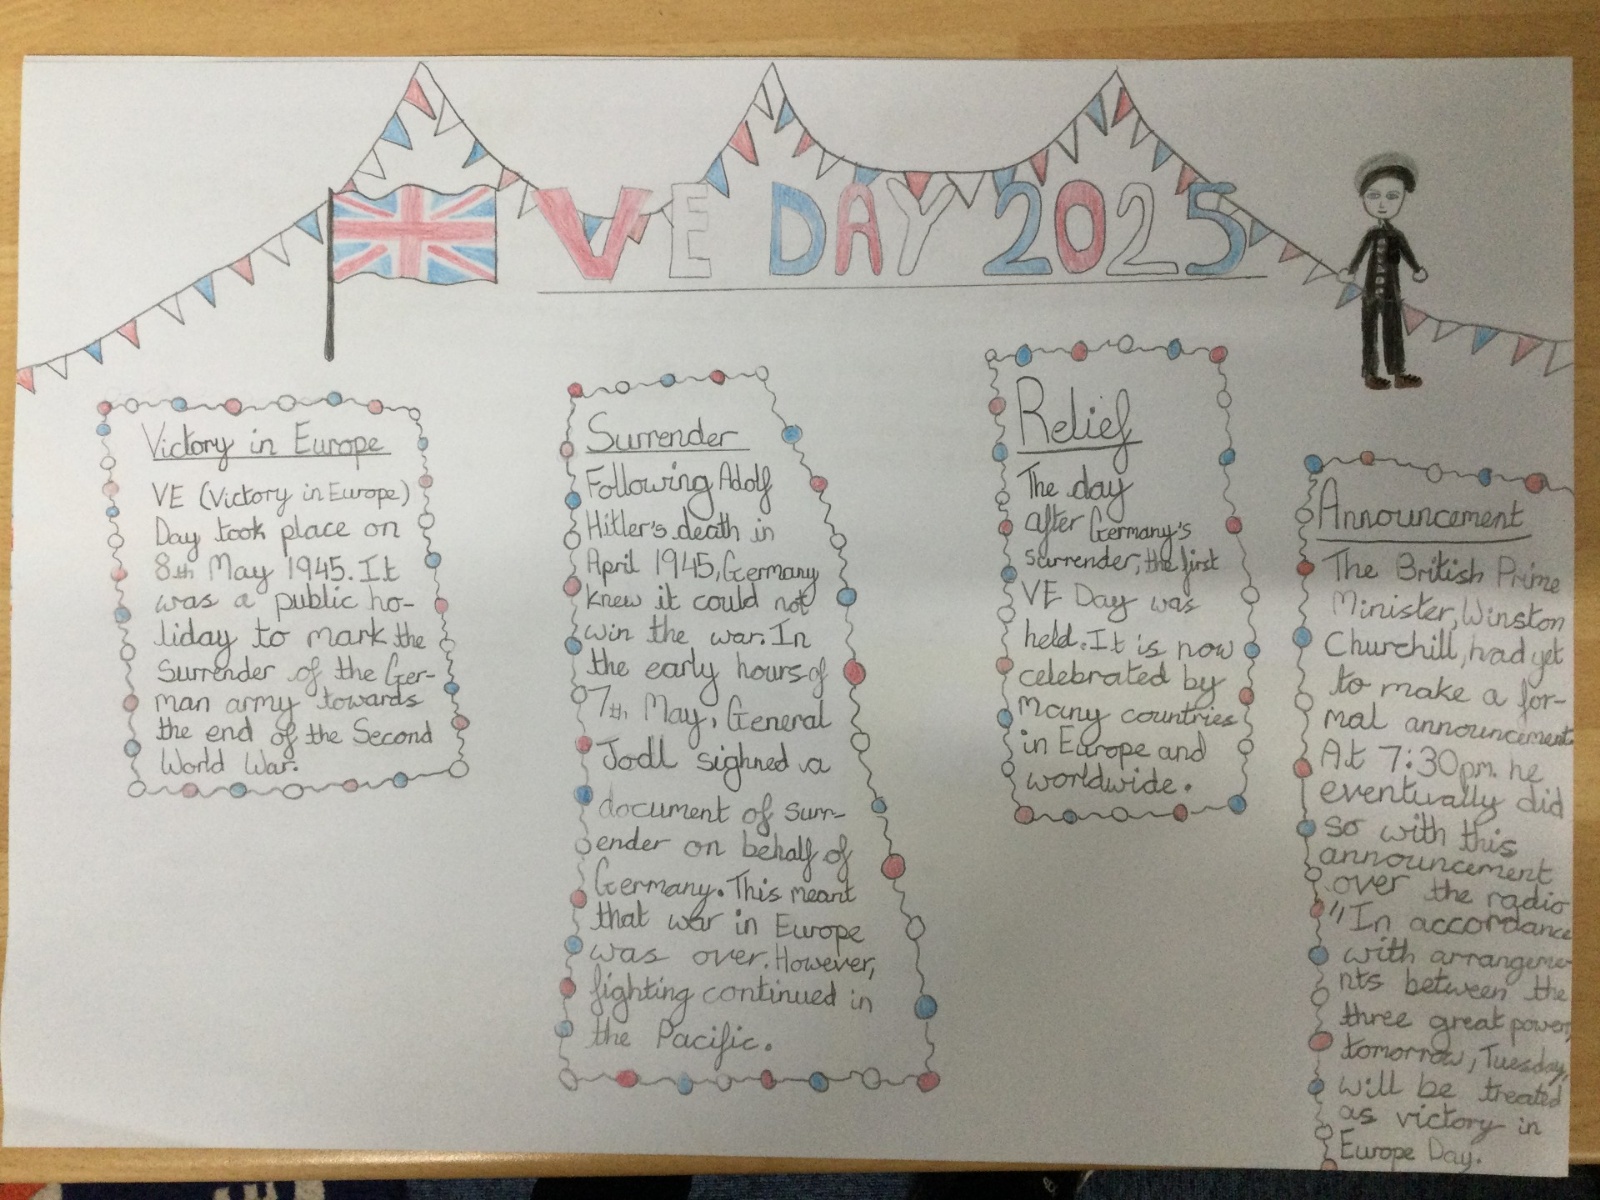 VE DAY 2025
Victory in Europe
VE (Victory in Europe)
Day took place on
8th May 1945. It
was a public ho-
liday to mark the
surrender of the Ger-
man army towards
the end of the Second
World War.
Surrender
Following Adolf
Hitler's death in
April 1945, Germany
knew it could not
win the war. In
the early hours of
7th May, General
Jodl sighned a
document of surr-
ender on behalf of
Germany. This meant
that war in Europe
was over. However,
fighting continued in
the Pacific.
Relief
The day
after Germany's
surrender, the first
VE Day was
held. It is now
celebrated by
many countries
in Europe and
worldwide.
Announcement
The British Prime
Minister, Winston
Churchill, had yet
to make a for-
mal announcement.
At 7:30pm. he
eventually did
so with this
announcement
over the radio
"In accordance
with arrangeme-
nts between the
three great powers,
tomorrow, Tuesday,
will be treated
as victory in
Europe Day.